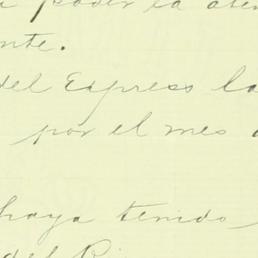 poder la
nte.
del Express la
por el mes
haya tenido
del